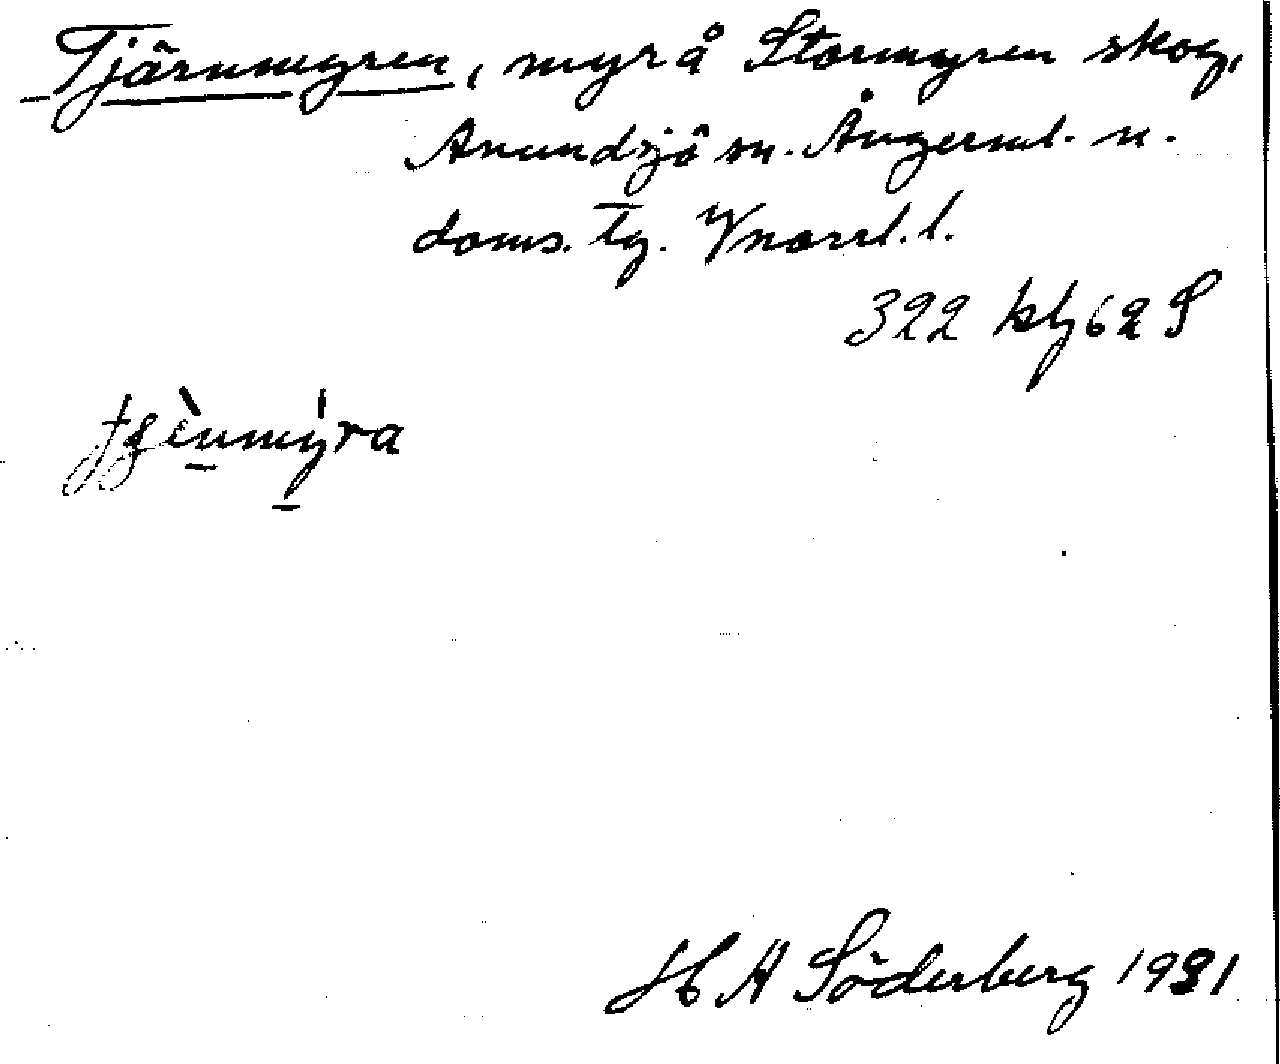 Tjärnmyren, myr å Stormyren skog,
Anundsjö sn. Ångerml. n.
doms. tg. Vnorrl. l.
322 kfg 62 S
H A Söderberg 1931